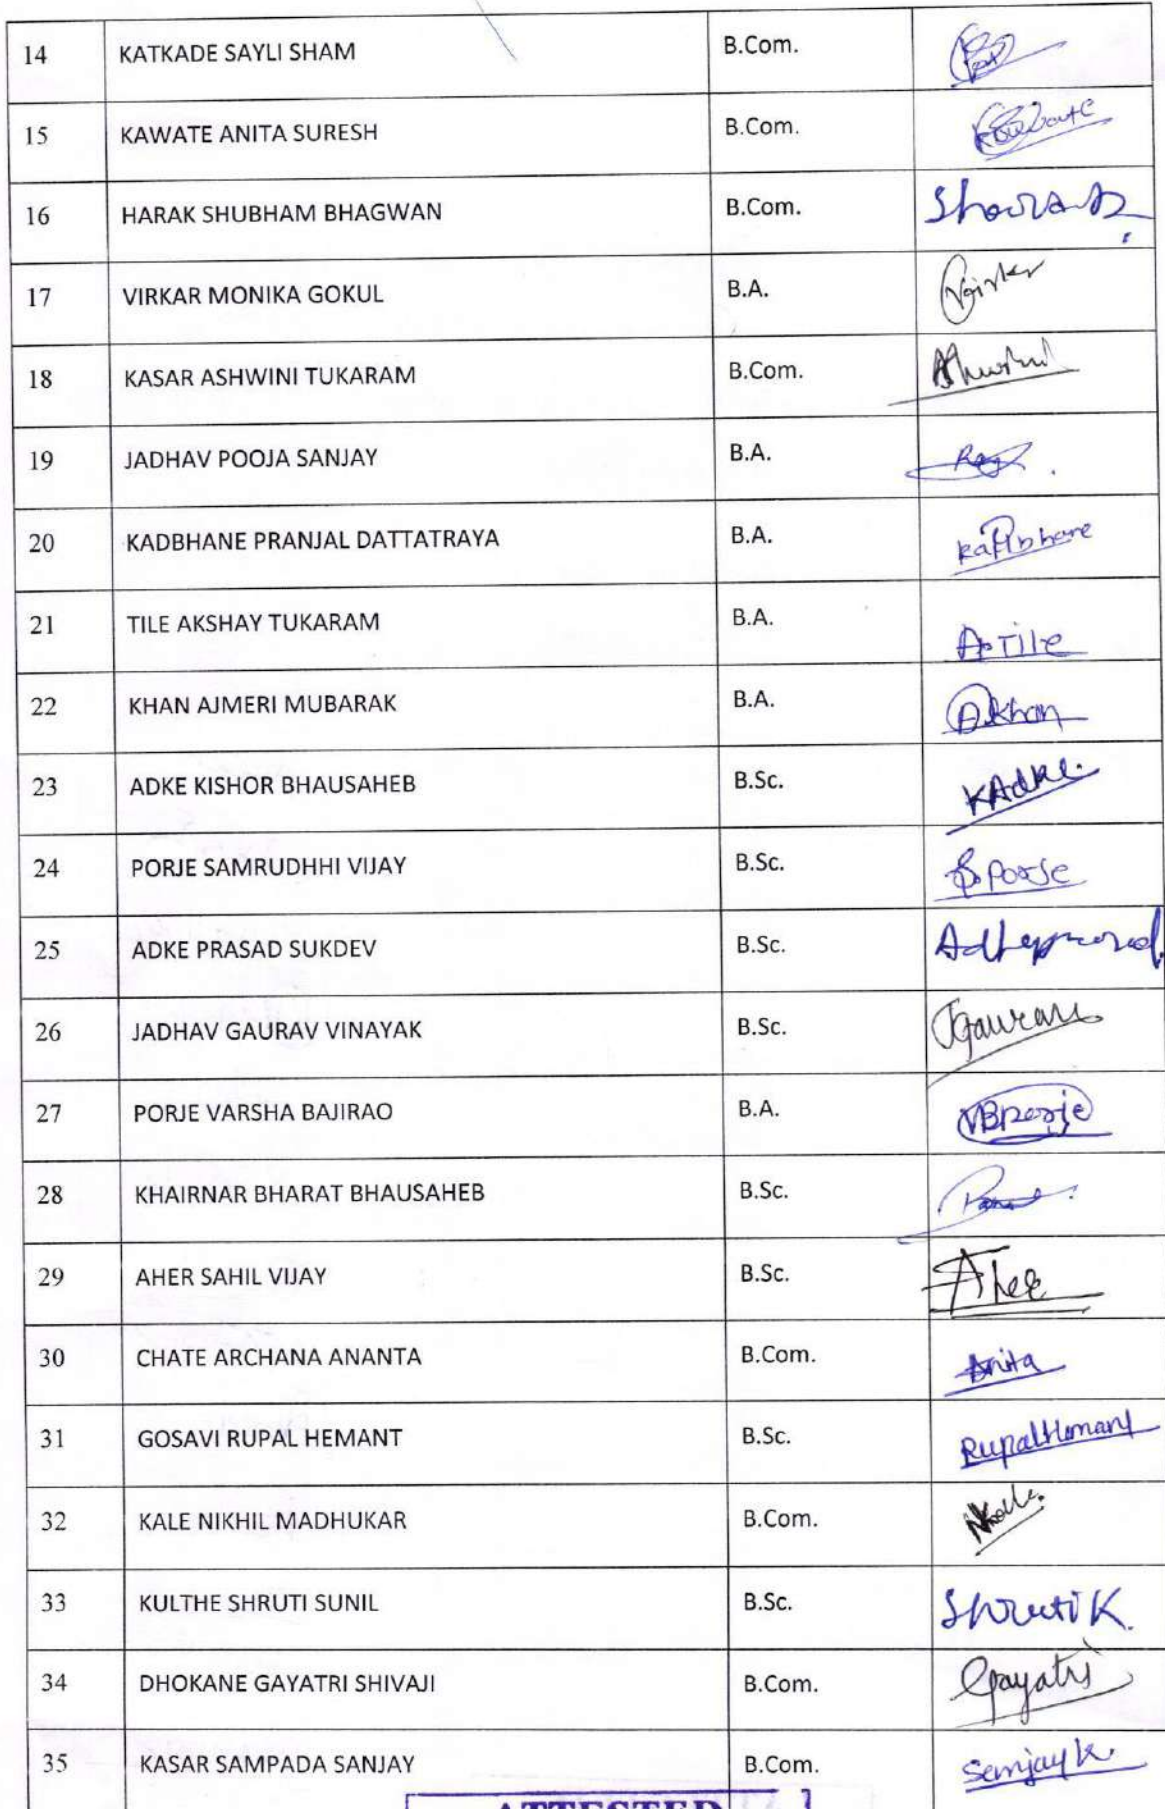 14 KATKADE SAYLI SHAM B.Com.
15 KAWATE ANITA SURESH B.Com.
16 HARAK SHUBHAM BHAGWAN B.Com.
17 VIRKAR MONIKA GOKUL B.A.
18 KASAR ASHWINI TUKARAM B.Com.
19 JADHAV POOJA SANJAY B.A.
20 KADBHANE PRANJAL DATTATRAYA B.A.
21 TILE AKSHAY TUKARAM B.A. A.Tile
22 KHAN AJMERI MUBARAK B.A. AKhan
23 ADKE KISHOR BHAUSAHEB B.Sc. KAdke.
24 PORJE SAMRUDHHI VIJAY B.Sc.
25 ADKE PRASAD SUKDEV B.Sc.
26 JADHAV GAURAV VINAYAK B.Sc. JGaurav
27 PORJE VARSHA BAJIRAO B.A. VBPorje
28 KHAIRNAR BHARAT BHAUSAHEB B.Sc.
29 AHER SAHIL VIJAY B.Sc. Aher
30 CHATE ARCHANA ANANTA B.Com. Anita
31 GOSAVI RUPAL HEMANT B.Sc. RupalHemant
32 KALE NIKHIL MADHUKAR B.Com.
33 KULTHE SHRUTI SUNIL B.Sc. Shruti K.
34 DHOKANE GAYATRI SHIVAJI B.Com. Gayatri
35 KASAR SAMPADA SANJAY B.Com. Sanjay K.
ATTESTED